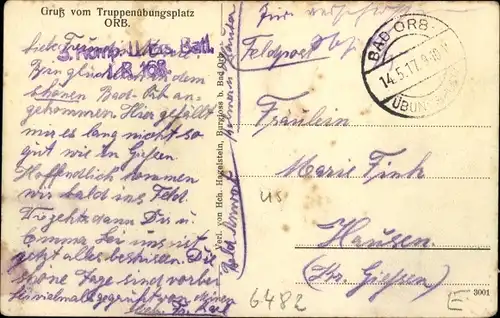 Gruß vom Truppenübungsplatz
ORB.
3. Komp. II. Ers. Batl.
I. R. 168
Bin glücklich in dem
schönen Bad-Orb an-
gekommen. Hier gefällt
mir es lang nicht so
gut wie in Giesen.
Hoffendlich kommen
wir bald ins Feld.
Wie gehts dann Dir u.
Emma bei uns ist
jetzt alles beschieden. Die
schöne Tage sind vorbei
Verl. von Hch. Hagelstein, Burgjoss b. Bad Orb.
Feldpost
BAD ORB
14.5.17. 9-10 V.
ÜBUNGSPLATZ
Fräulein
Marie Fink
Hausen
(Kr. Giesen)
US
6482
3001
E